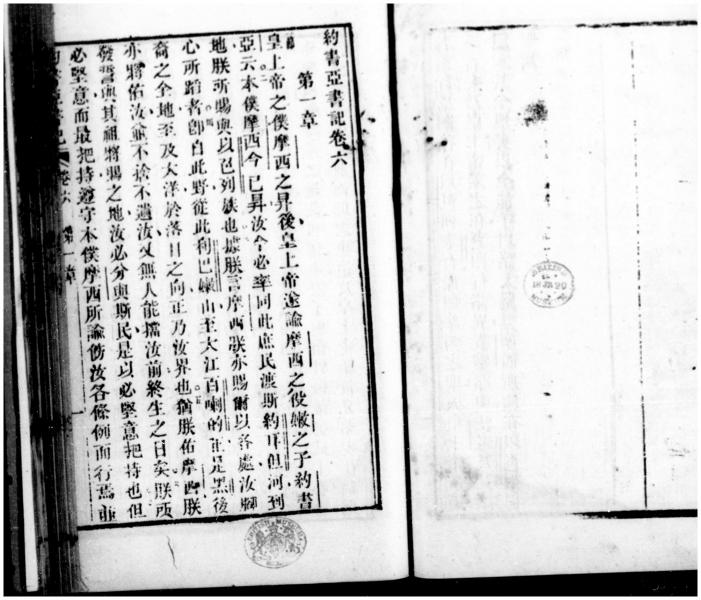 約書亞書記卷六
第一章
皇上帝之僕摩西之昇後皇上帝遂諭摩西之役嫩之子約書
亞云本僕摩西今已昇汝今必率同此庶民渡斯約耳但河到
地朕所賜與以色列族也據朕言摩西朕亦賜爾以各處汝腳
心所踏者卽自此野從此利巴嫩山至大江百喇的正是黑後
裔之全地至及大洋於落日之向正乃汝界也猶朕佑摩西朕
亦將佑汝並不捨不遺汝又無人能擋汝前終生之日矣朕所
發誓與其祖將賜之地汝必分與斯民是以必堅意把持也但
必堅意而最把持遵守本僕摩西所諭汝各條例而行焉並
書記 卷六 第一章
BRITISH MUSEUM